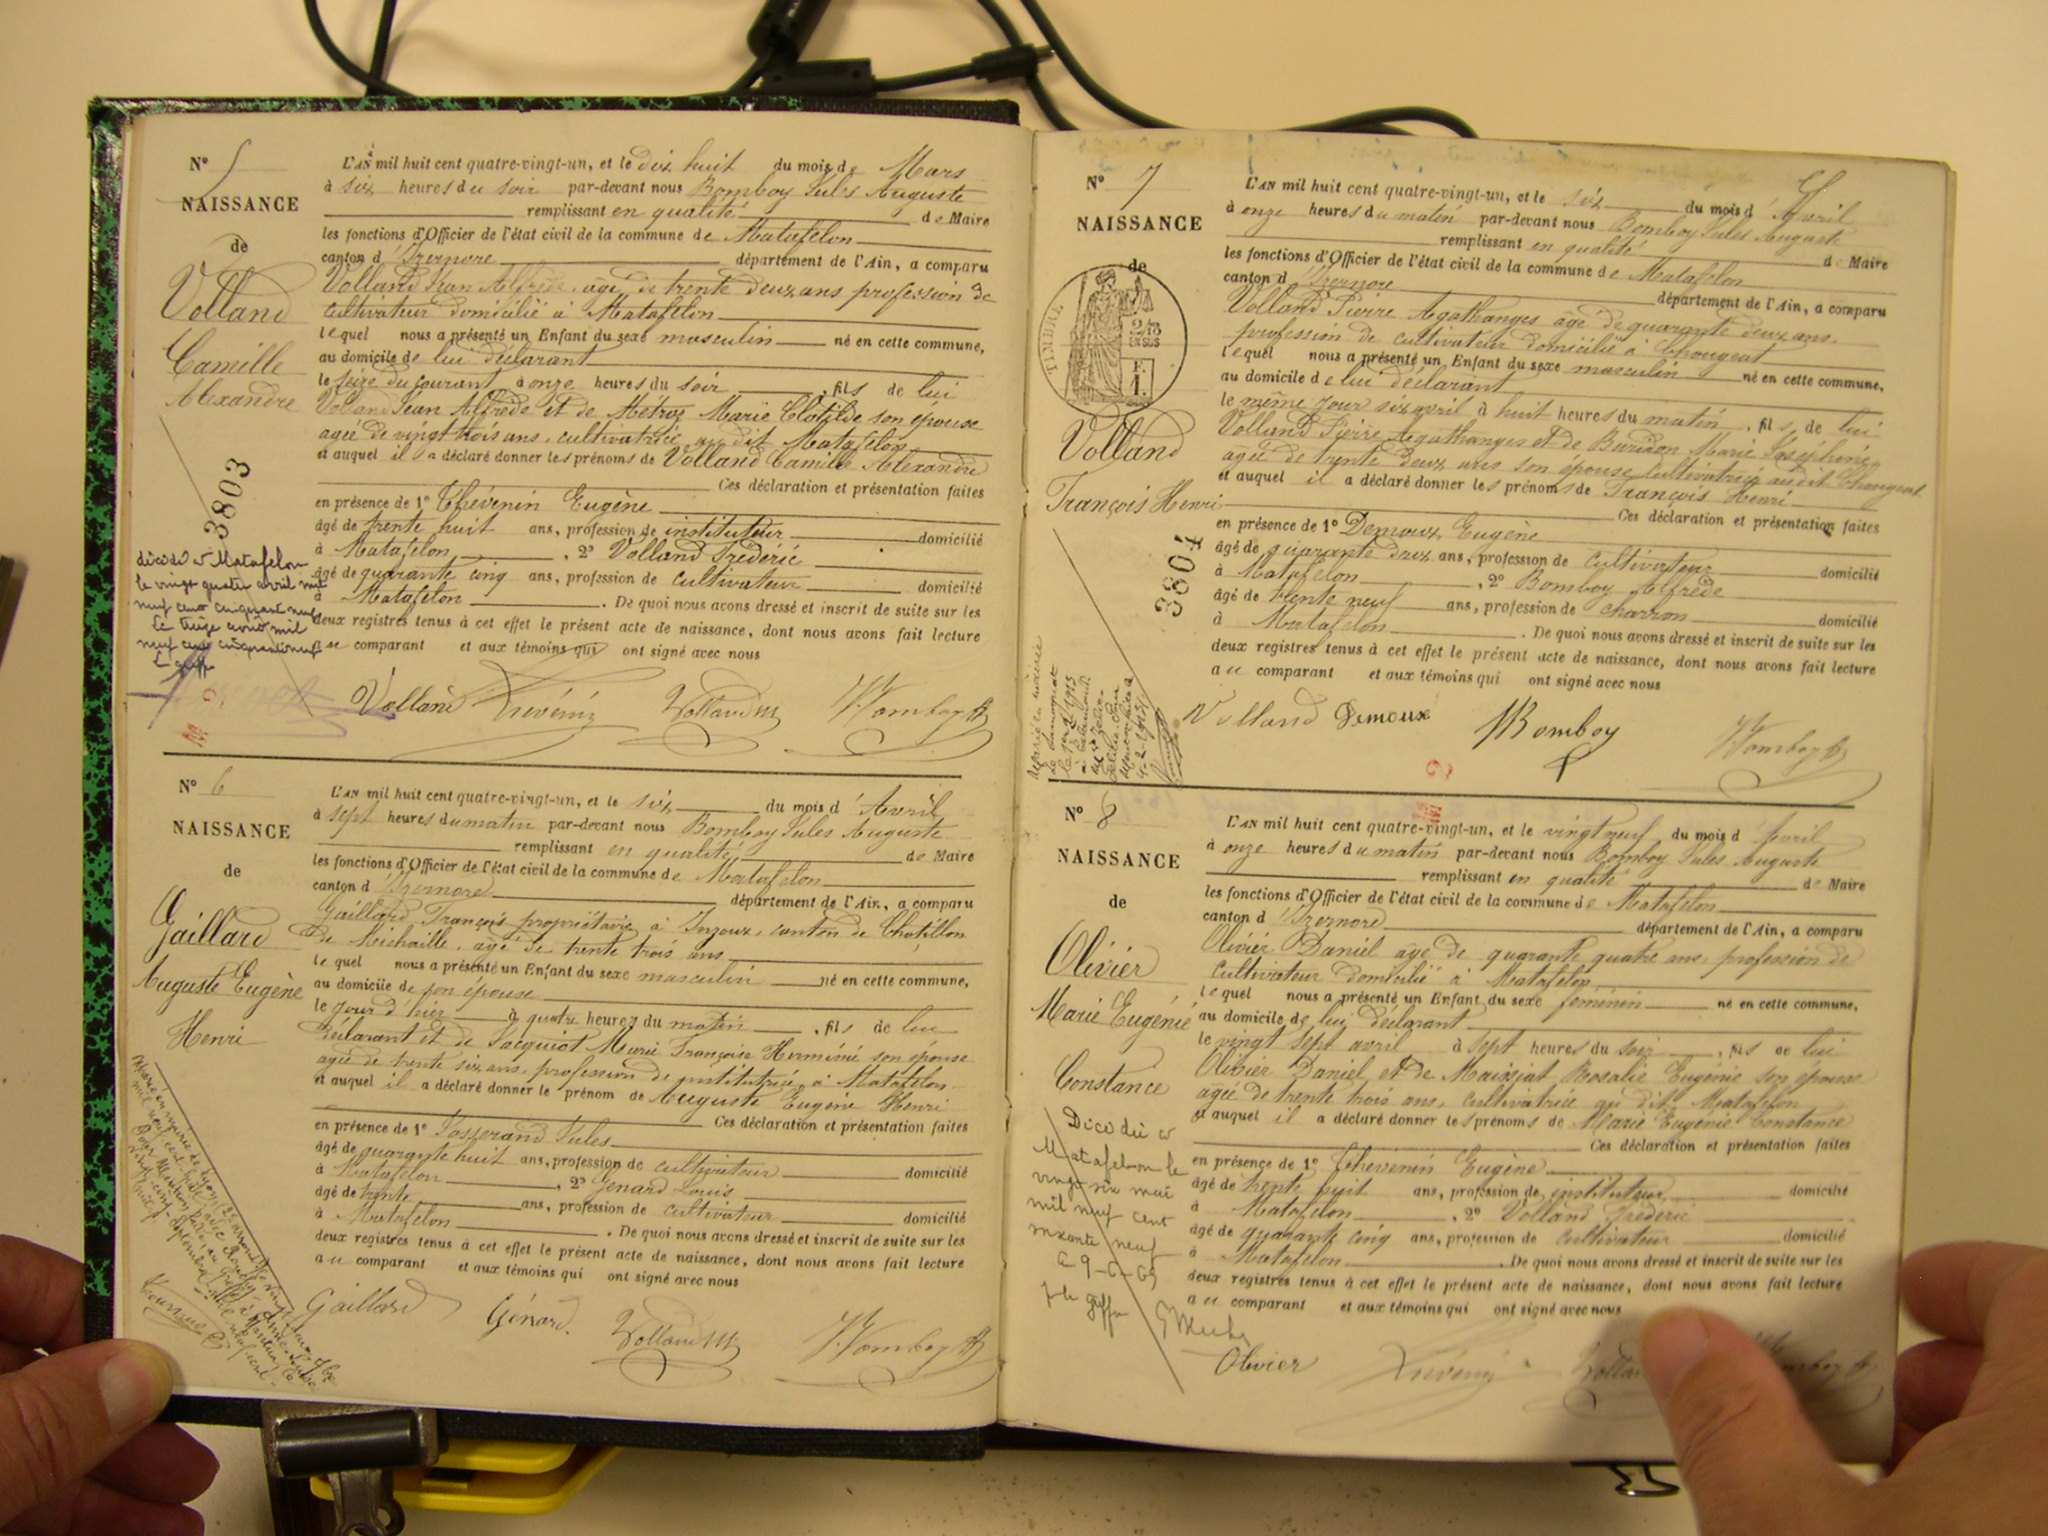 N° 5
NAISSANCE
de
Volland
Camille
Alexandre
3803
décédé à Matafelon
le vingt quatre avril mil
neuf cent cinquante neuf
Le treize août mil
neuf cent cinquante neuf
L'AN mil huit cent quatre-vingt-un, et le dix huit du mois de Mars
à six heures du soir par-devant nous Bomboy Jules Auguste
remplissant en qualité de Maire
les fonctions d'Officier de l'état civil de la commune de Matafelon
canton d'Izernore département de l'Ain, a comparu
Volland Jean Alfrède, âgé de trente deux ans profession de
cultivateur domicilié à Matafelon
lequel nous a présenté un Enfant du sexe masculin né en cette commune,
au domicile de lui déclarant
le seize du courant à onze heures du soir, fils de lui
Volland Jean Alfrède et de Métroz Marie Clotilde son épouse
agée de vingt trois ans, cultivatrice, au dit Matafelon
et auquel il a déclaré donner les prénoms de Volland Camille Alexandre
Ces déclaration et présentation faites
en présence de 1° Thévenin Eugène
âgé de trente huit ans, profession de instituteur domicilié
à Matafelon, 2° Volland Frédéric
âgé de quarante cinq ans, profession de cultivateur domicilié
à Matafelon. De quoi nous avons dressé et inscrit de suite sur les
deux registres tenus à cet effet le présent acte de naissance, dont nous avons fait lecture
au comparant et aux témoins qui ont signé avec nous
Volland Thévenin Volland Bomboy
N° 6
NAISSANCE
de
Gaillard
Auguste Eugène
Henri
L'AN mil huit cent quatre-vingt-un, et le six du mois d'Avril
à sept heures du matin par-devant nous Bomboy Jules Auguste
remplissant en qualité de Maire
les fonctions d'Officier de l'état civil de la commune de Matafelon
canton d'Izernore département de l'Ain, a comparu
Gaillard François propriétaire à Injoux, canton de Châtillon
de Michaille, âgé de trente trois ans
lequel nous a présenté un Enfant du sexe masculin né en cette commune,
au domicile de son épouse
le jour d'hier à quatre heures du matin, fils de lui
déclarant et de Jacquiot Marie Françoise Herminie son épouse
agée de trente six ans, profession de institutrice, à Matafelon
et auquel il a déclaré donner le prénom de Auguste Eugène Henri
Ces déclaration et présentation faites
en présence de 1° Josserand Jules
âgé de quarante huit ans, profession de cultivateur domicilié
à Matafelon, 2° Genard Louis
âgé de trente ans, profession de cultivateur domicilié
à Matafelon. De quoi nous avons dressé et inscrit de suite sur les
deux registres tenus à cet effet le présent acte de naissance, dont nous avons fait lecture
au comparant et aux témoins qui ont signé avec nous
Gaillard Génard Volland Bomboy
N° 7
NAISSANCE
de
TIMBRE
Volland
François Henri
3804
L'AN mil huit cent quatre-vingt-un, et le six du mois d'Avril
à onze heures du matin par-devant nous Bomboy Jules Auguste
remplissant en qualité de Maire
les fonctions d'Officier de l'état civil de la commune de Matafelon
canton d'Izernore département de l'Ain, a comparu
Volland Pierre Agathanges agé de quarante deux ans
profession de cultivateur domicilié à Chougeat
lequel nous a présenté un Enfant du sexe masculin né en cette commune,
au domicile de lui déclarant
le même jour six avril à huit heures du matin, fils de lui
Volland Pierre Agathanges et de Buridon Marie Joséphine
agée de trente deux ans son épouse cultivatrice audit Chougeat
et auquel il a déclaré donner les prénoms de François Henri
Ces déclaration et présentation faites
en présence de 1° Demoux Eugène
âgé de quarante deux ans, profession de cultivateur domicilié
à Matafelon, 2° Bomboy Alfrède
âgé de trente neuf ans, profession de charron domicilié
à Matafelon. De quoi nous avons dressé et inscrit de suite sur les
deux registres tenus à cet effet le présent acte de naissance, dont nous avons fait lecture
au comparant et aux témoins qui ont signé avec nous
Volland Demoux Bomboy Bomboy
N° 8
NAISSANCE
de
Olivier
Marie Eugénie
Constance
Décédée à
Matafelon le
vingt six mai
mil neuf cent
soixante neuf
L'AN mil huit cent quatre-vingt-un, et le vingt neuf du mois d'Avril
à onze heures du matin par-devant nous Bomboy Jules Auguste
remplissant en qualité de Maire
les fonctions d'Officier de l'état civil de la commune de Matafelon
canton d'Izernore département de l'Ain, a comparu
Olivier Daniel âgé de quarante quatre ans, profession de
cultivateur domicilié à Matafelon
lequel nous a présenté un Enfant du sexe féminin né en cette commune,
au domicile de lui déclarant
le vingt sept avril à sept heures du soir, fils de lui
Olivier Daniel et de Maissiat Rosalie Eugénie son épouse
agée de trente trois ans, cultivatrice au dit Matafelon
et auquel il a déclaré donner les prénoms de Marie Eugénie Constance
Ces déclaration et présentation faites
en présence de 1° Thévenin Eugène
âgé de trente huit ans, profession de instituteur domicilié
à Matafelon, 2° Volland Frédéric
âgé de quarante cinq ans, profession de cultivateur domicilié
à Matafelon. De quoi nous avons dressé et inscrit de suite sur les
deux registres tenus à cet effet le présent acte de naissance, dont nous avons fait lecture
au comparant et aux témoins qui ont signé avec nous
Olivier Thévenin